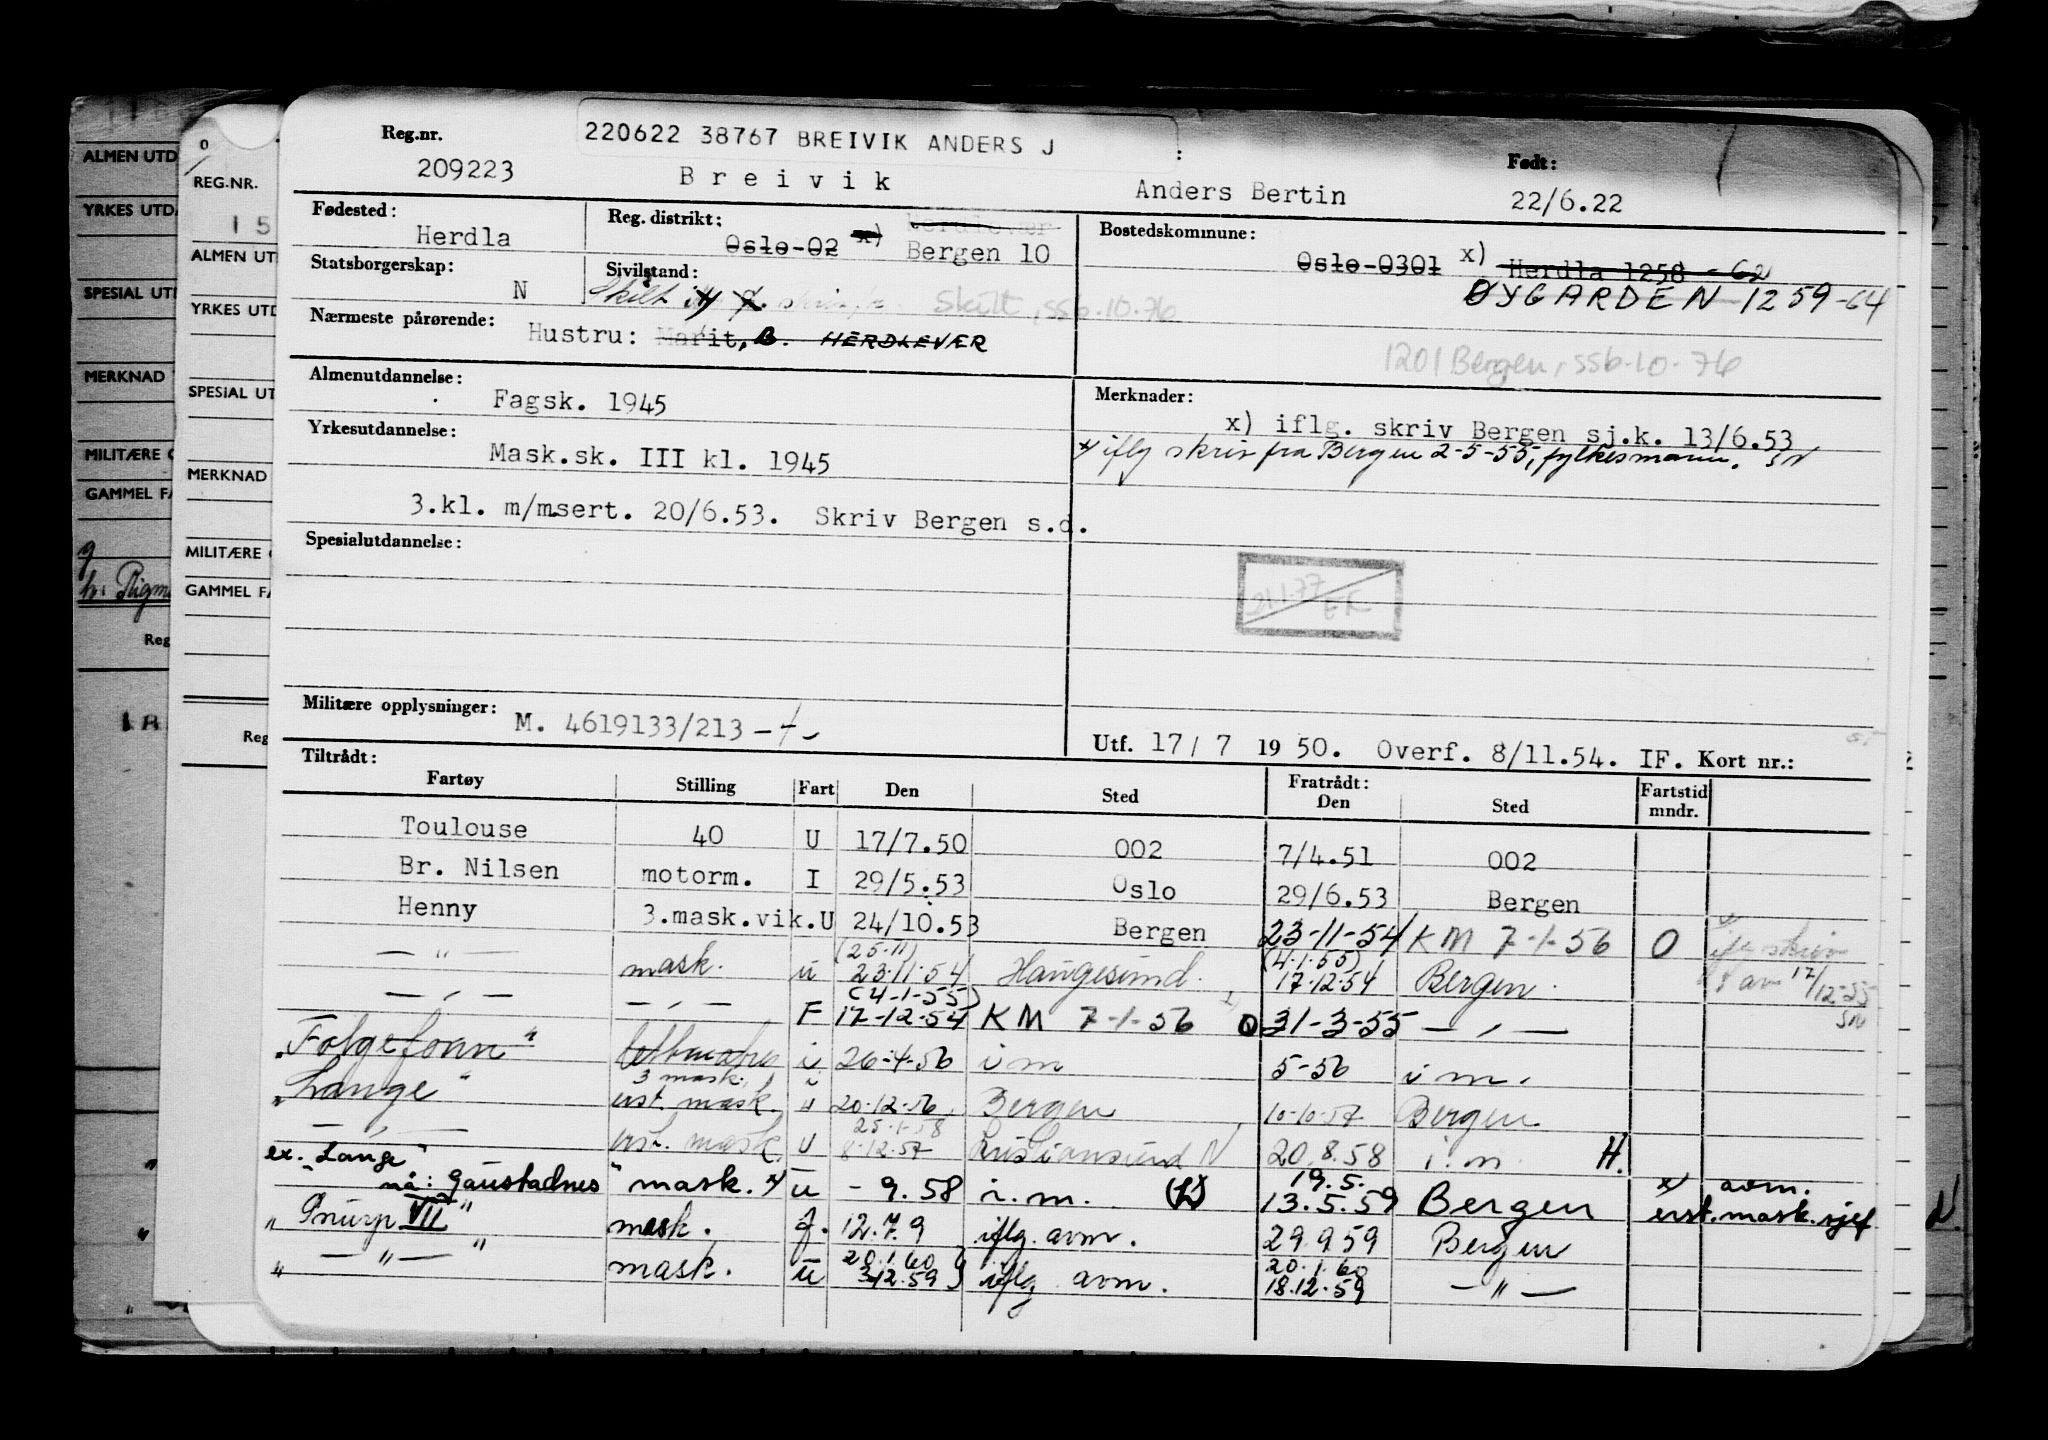 Reg.nr. 220622 38767 BREIVIK ANDERS J : Født:
209223 Breivik Anders Bertin 22/6.22
Fødested: Herdla Reg. distrikt: Oslo-02 x) Herdlevær Bergen 10 Bostedskommune: Oslo-0301 x) Herdla 1258 - 62
ØYGARDEN - 1259-64
Statsborgerskap: N Sivilstand: Skilt Skilt, ssb.10.76
Nærmeste pårørende: Hustru: Marit, B. HERDLEVÆR
1201 Bergen, ssb.10.76
Almenutdannelse: Fagsk. 1945 Merknader: x) iflg. skriv Bergen sj.k. 13/6.53
Yrkesutdannelse: Mask.sk. III kl. 1945 x iflg skriv fra Bergen 2-5-55, fylkesmann. SN
3.kl. m/msert. 20/6.53. Skriv Bergen s.d.
Spesialutdannelse:
21.1.77 EK
Militære opplysninger: M. 4619133/213
Utf. 17/7 1950. Overf. 8/11.54. IF. Kort nr.:
Tiltrådt: Fartøy Stilling Fart Den Sted Fratrådt: Den Sted Fartstid mndr.
Toulouse 40 U 17/7.50 002 7/4.51 002
Br. Nilsen motorm. I 29/5.53 Oslo 29/6.53 Bergen
Henny 3.mask.vik. U 24/10.53 Bergen 23-11-54 KM 7-1-56 O iflg skriv
— " — mask. u (25.11) 23.11.54 Haugesund. (4.1.55) 17.12.54 Bergen. av 17/12-55 SN
— " — — " — F (4-1-55) 17-12-54 KM 7-1-56 O 31-3-55 — " —
"Folgefonn" i 26-4-56 i m 5-56 i m.
"Lange" 3 mask. ass. mask. u 20.12.56 Bergen 10-10-57 Bergen
— " — ass. mask. u 25.1.58 8.12.57 Kristiansund N 20.8.58 i.m. H.
ex. "Lange"
nå: Gaustadnes" mask. x) u - 9.58 i.m. 19.5. 13.5.59 Bergen x) avm. erst.mask.sjef
"Snurp VII" mask. f. 12.7.9 iflg. avm. 29.9.59 Bergen
" — " — " mask. u 20.1.60 3.12.59 iflg avm. 20.1.60 18.12.59 — " —
REG.NR.
ALMEN UTD
YRKES UTD
SPESIAL UT
MERKNAD
MILITÆRE
GAMMEL FA
ALMEN UTD
YRKES UTD
SPESIAL UT
MERKNAD
MILITÆRE
GAMMEL F
Reg
Reg